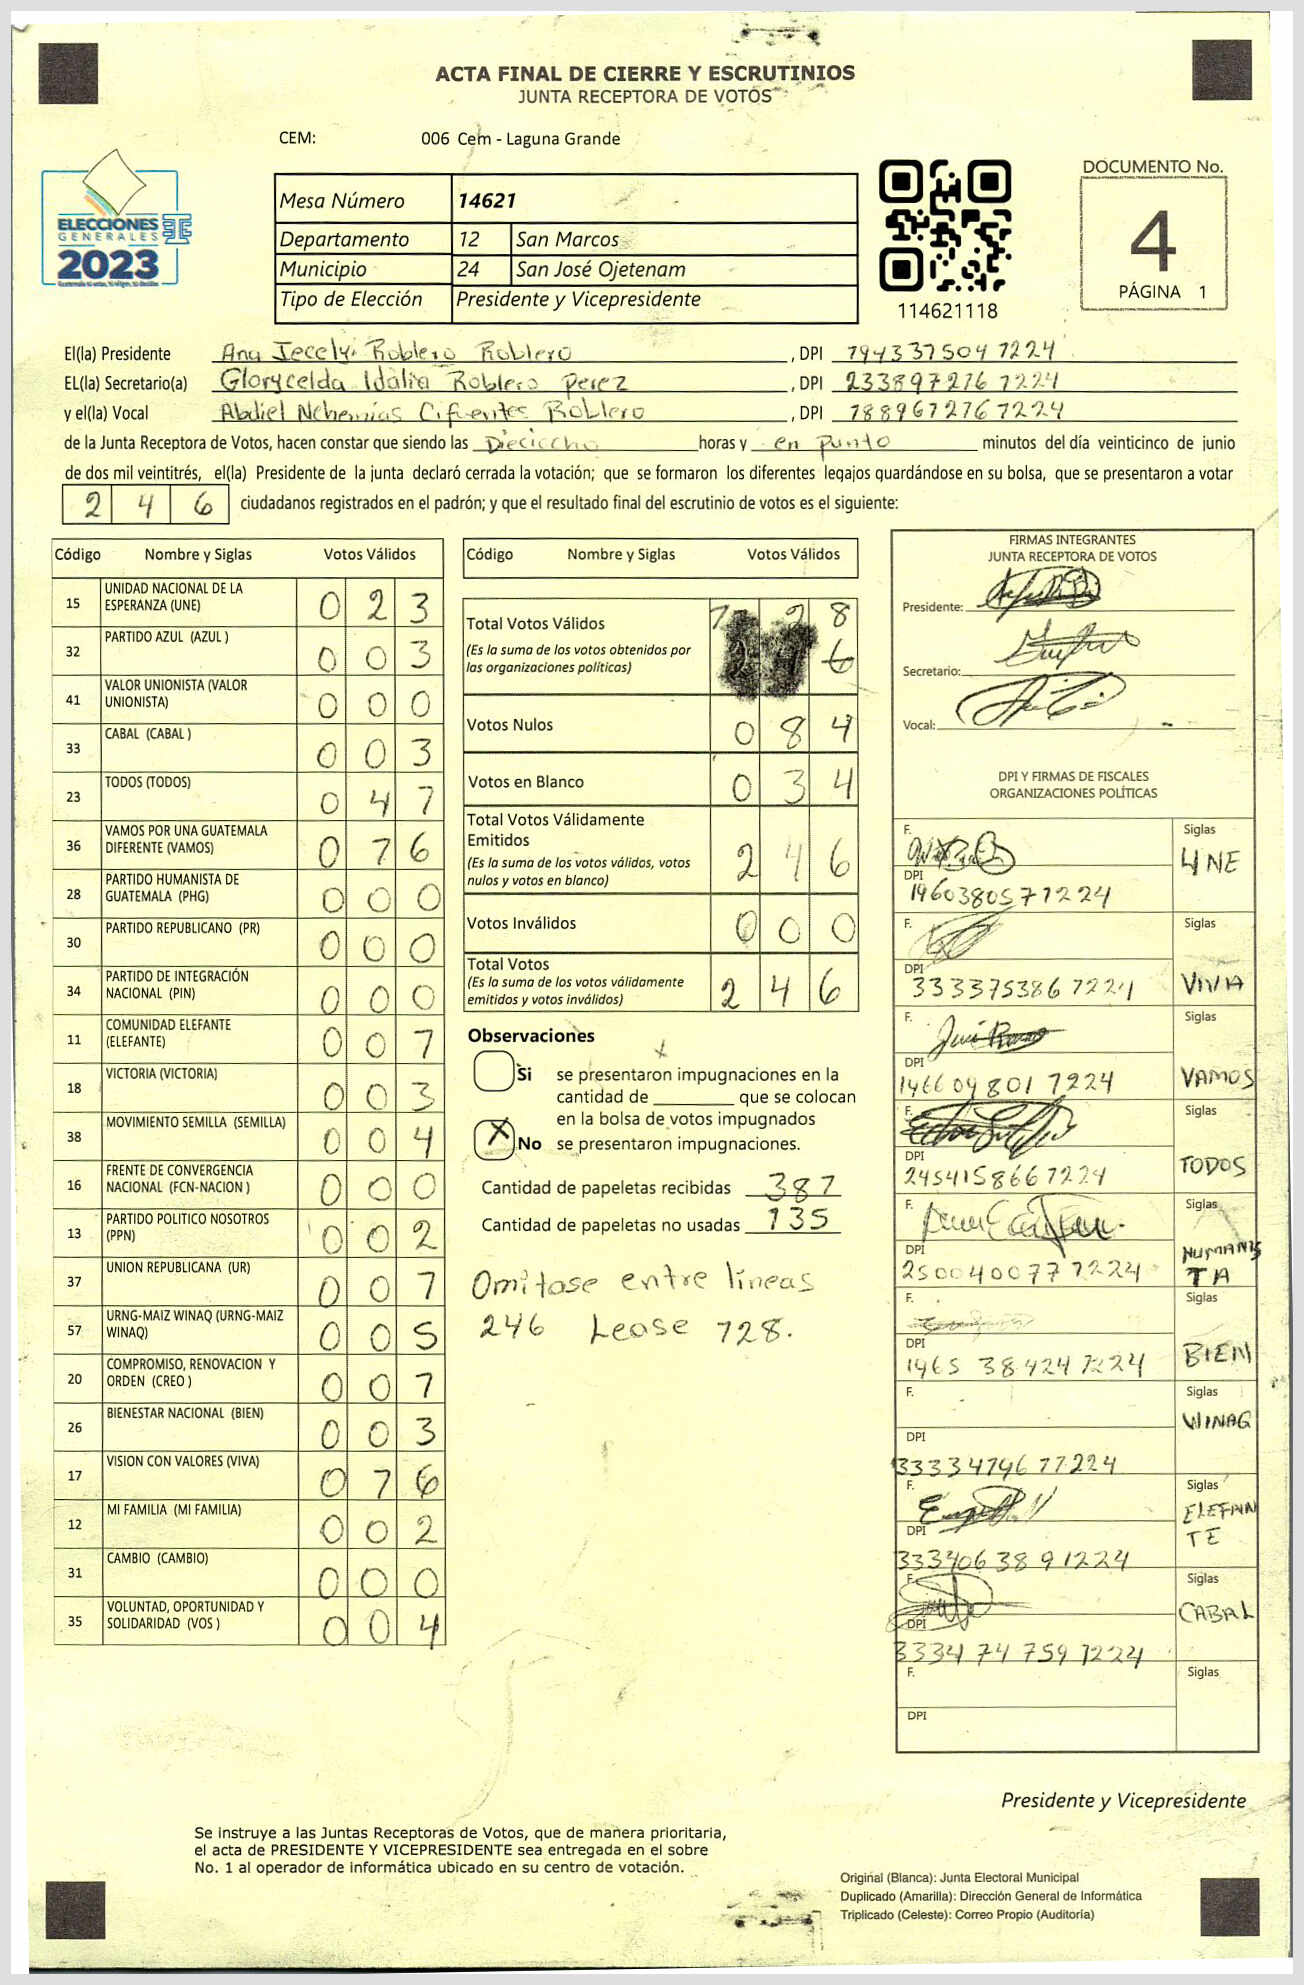 ACTA FINAL DE CIERRE Y ESCRUTINIOS
JUNTA RECEPTORA DE VOTOS
CEM: 006 Cem - Laguna Grande
ELECCIONES
GENERALES
2023
Mesa Número 14621
Departamento 12 San Marcos
Municipio 24 San José Ojetenam
Tipo de Elección Presidente y Vicepresidente
114621118
DOCUMENTO No.
4
PÁGINA 1
El(la) Presidente Ana Jecely Roblero Roblero , DPI 794337504 7224
EL(la) Secretario(a) Glorycelda Idalia Roblero Perez , DPI 233897276 7224
y el(la) Vocal Abdiel Nehemías Cifuentes Roblero , DPI 788967276 7224
de la Junta Receptora de Votos, hacen constar que siendo las Dieciocho horas y en punto minutos del día veinticinco de junio
de dos mil veintitrés, el(la) Presidente de la junta declaró cerrada la votación; que se formaron los diferentes legajos quardándose en su bolsa, que se presentaron a votar
2 4 6 ciudadanos registrados en el padrón; y que el resultado final del escrutinio de votos es el siguiente:
Código Nombre y Siglas Votos Válidos
15 UNIDAD NACIONAL DE LA ESPERANZA (UNE) 0 2 3
32 PARTIDO AZUL (AZUL ) 0 0 3
41 VALOR UNIONISTA (VALOR UNIONISTA) 0 0 0
33 CABAL (CABAL ) 0 0 3
23 TODOS (TODOS) 0 4 7
36 VAMOS POR UNA GUATEMALA DIFERENTE (VAMOS) 0 7 6
28 PARTIDO HUMANISTA DE GUATEMALA (PHG) 0 0 0
30 PARTIDO REPUBLICANO (PR) 0 0 0
34 PARTIDO DE INTEGRACIÓN NACIONAL (PIN) 0 0 0
11 COMUNIDAD ELEFANTE (ELEFANTE) 0 0 7
18 VICTORIA (VICTORIA) 0 0 3
38 MOVIMIENTO SEMILLA (SEMILLA) 0 0 4
16 FRENTE DE CONVERGENCIA NACIONAL (FCN-NACION ) 0 0 0
13 PARTIDO POLITICO NOSOTROS (PPN) 0 0 2
37 UNION REPUBLICANA (UR) 0 0 7
57 URNG-MAIZ WINAQ (URNG-MAIZ WINAQ) 0 0 5
20 COMPROMISO, RENOVACION Y ORDEN (CREO ) 0 0 7
26 BIENESTAR NACIONAL (BIEN) 0 0 3
17 VISION CON VALORES (VIVA) 0 7 6
12 MI FAMILIA (MI FAMILIA) 0 0 2
31 CAMBIO (CAMBIO) 0 0 0
35 VOLUNTAD, OPORTUNIDAD Y SOLIDARIDAD (VOS ) 0 0 4
Código Nombre y Siglas Votos Válidos
Total Votos Válidos 7 2 8
(Es la suma de los votos obtenidos por las organizaciones políticas) 2 4 6
Votos Nulos 0 8 4
Votos en Blanco 0 3 4
Total Votos Válidamente Emitidos 2 4 6
(Es la suma de los votos válidos, votos nulos y votos en blanco)
Votos Inválidos 0 0 0
Total Votos 2 4 6
(Es la suma de los votos válidamente emitidos y votos inválidos)
Observaciones
Si se presentaron impugnaciones en la
cantidad de ________ que se colocan
en la bolsa de votos impugnados
X No se presentaron impugnaciones.
Cantidad de papeletas recibidas 387
Cantidad de papeletas no usadas 135
Omitase entre lineas
246 Lease 728.
FIRMAS INTEGRANTES
JUNTA RECEPTORA DE VOTOS
Presidente:
Secretario:
Vocal:
DPI Y FIRMAS DE FISCALES
ORGANIZACIONES POLÍTICAS
F. Siglas UNE
DPI 196038057 1224
F. Siglas VIVA
DPI 333375386 7224
F. Siglas VAMOS
DPI 146609801 7224
F. Siglas TODOS
DPI 245415866 7224
F. Siglas HUMANISTA
DPI 250040077 7224
F. Siglas BIEN
DPI 1965 38424 7224
F. Siglas WINAG
DPI 333347467 7224
F. Siglas ELEFANTE
DPI 333406 38 9 1224
F. Siglas CABAL
DPI 3334 74 759 1224
F. Siglas
DPI
Presidente y Vicepresidente
Se instruye a las Juntas Receptoras de Votos, que de manera prioritaria,
el acta de PRESIDENTE Y VICEPRESIDENTE sea entregada en el sobre
No. 1 al operador de informática ubicado en su centro de votación.
Original (Blanca): Junta Electoral Municipal
Duplicado (Amarilla): Dirección General de Informática
Triplicado (Celeste): Correo Propio (Auditoría)